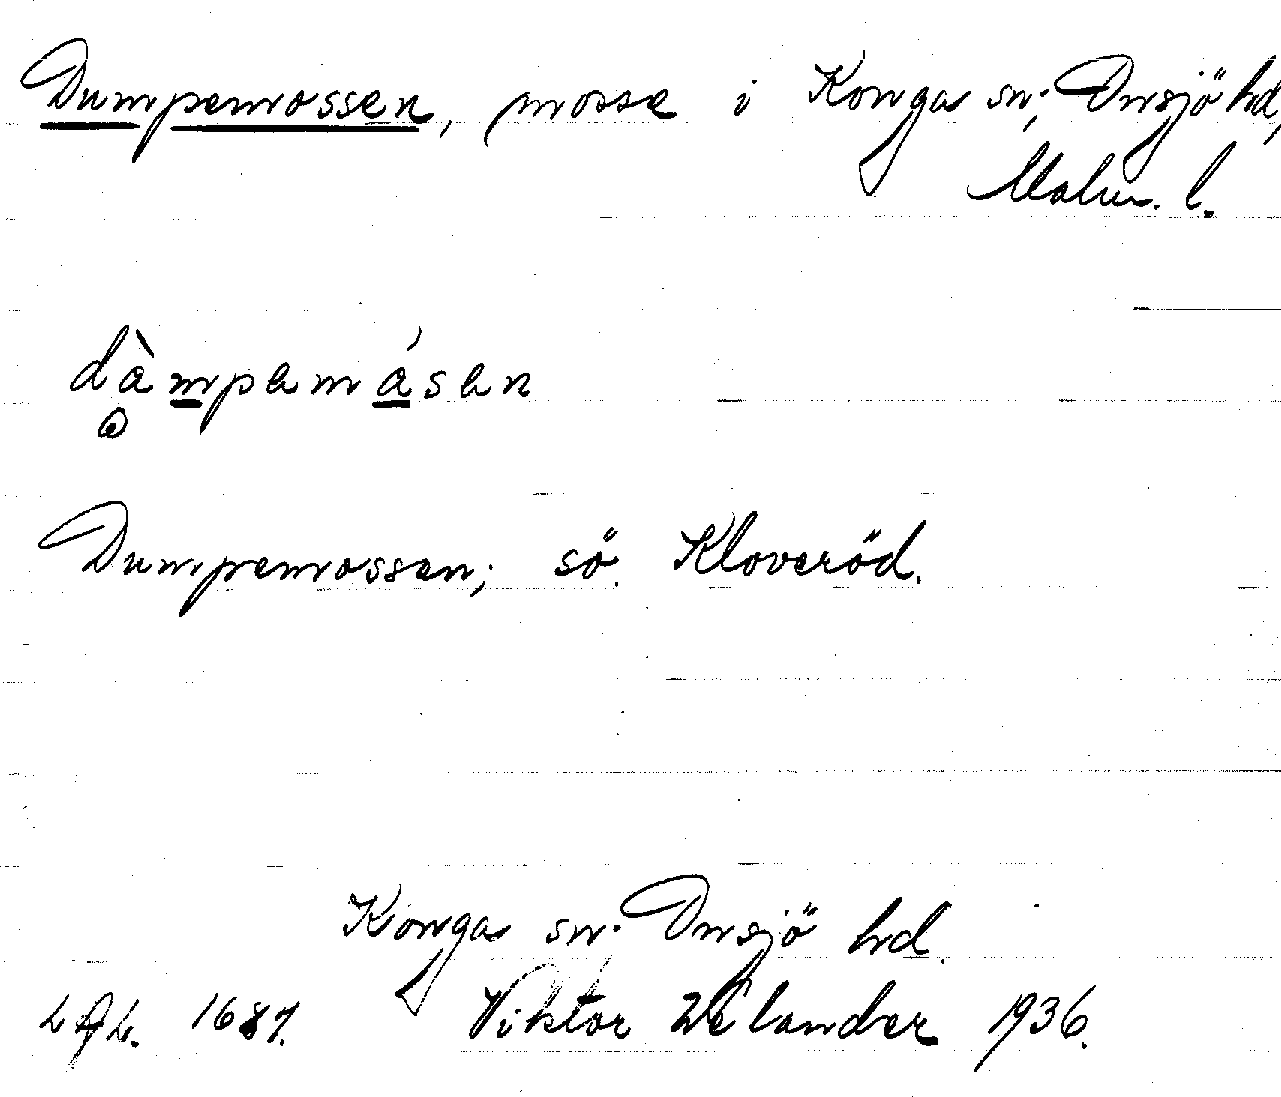 Dumpemossen, mosse i Konga sn; Onsjö hd,
Malm. l.
dàmpamásen
Dumpemossen; sö. Kloveröd.
Konga sn. Onsjö hd.
1687. Viktor Welander 1936.